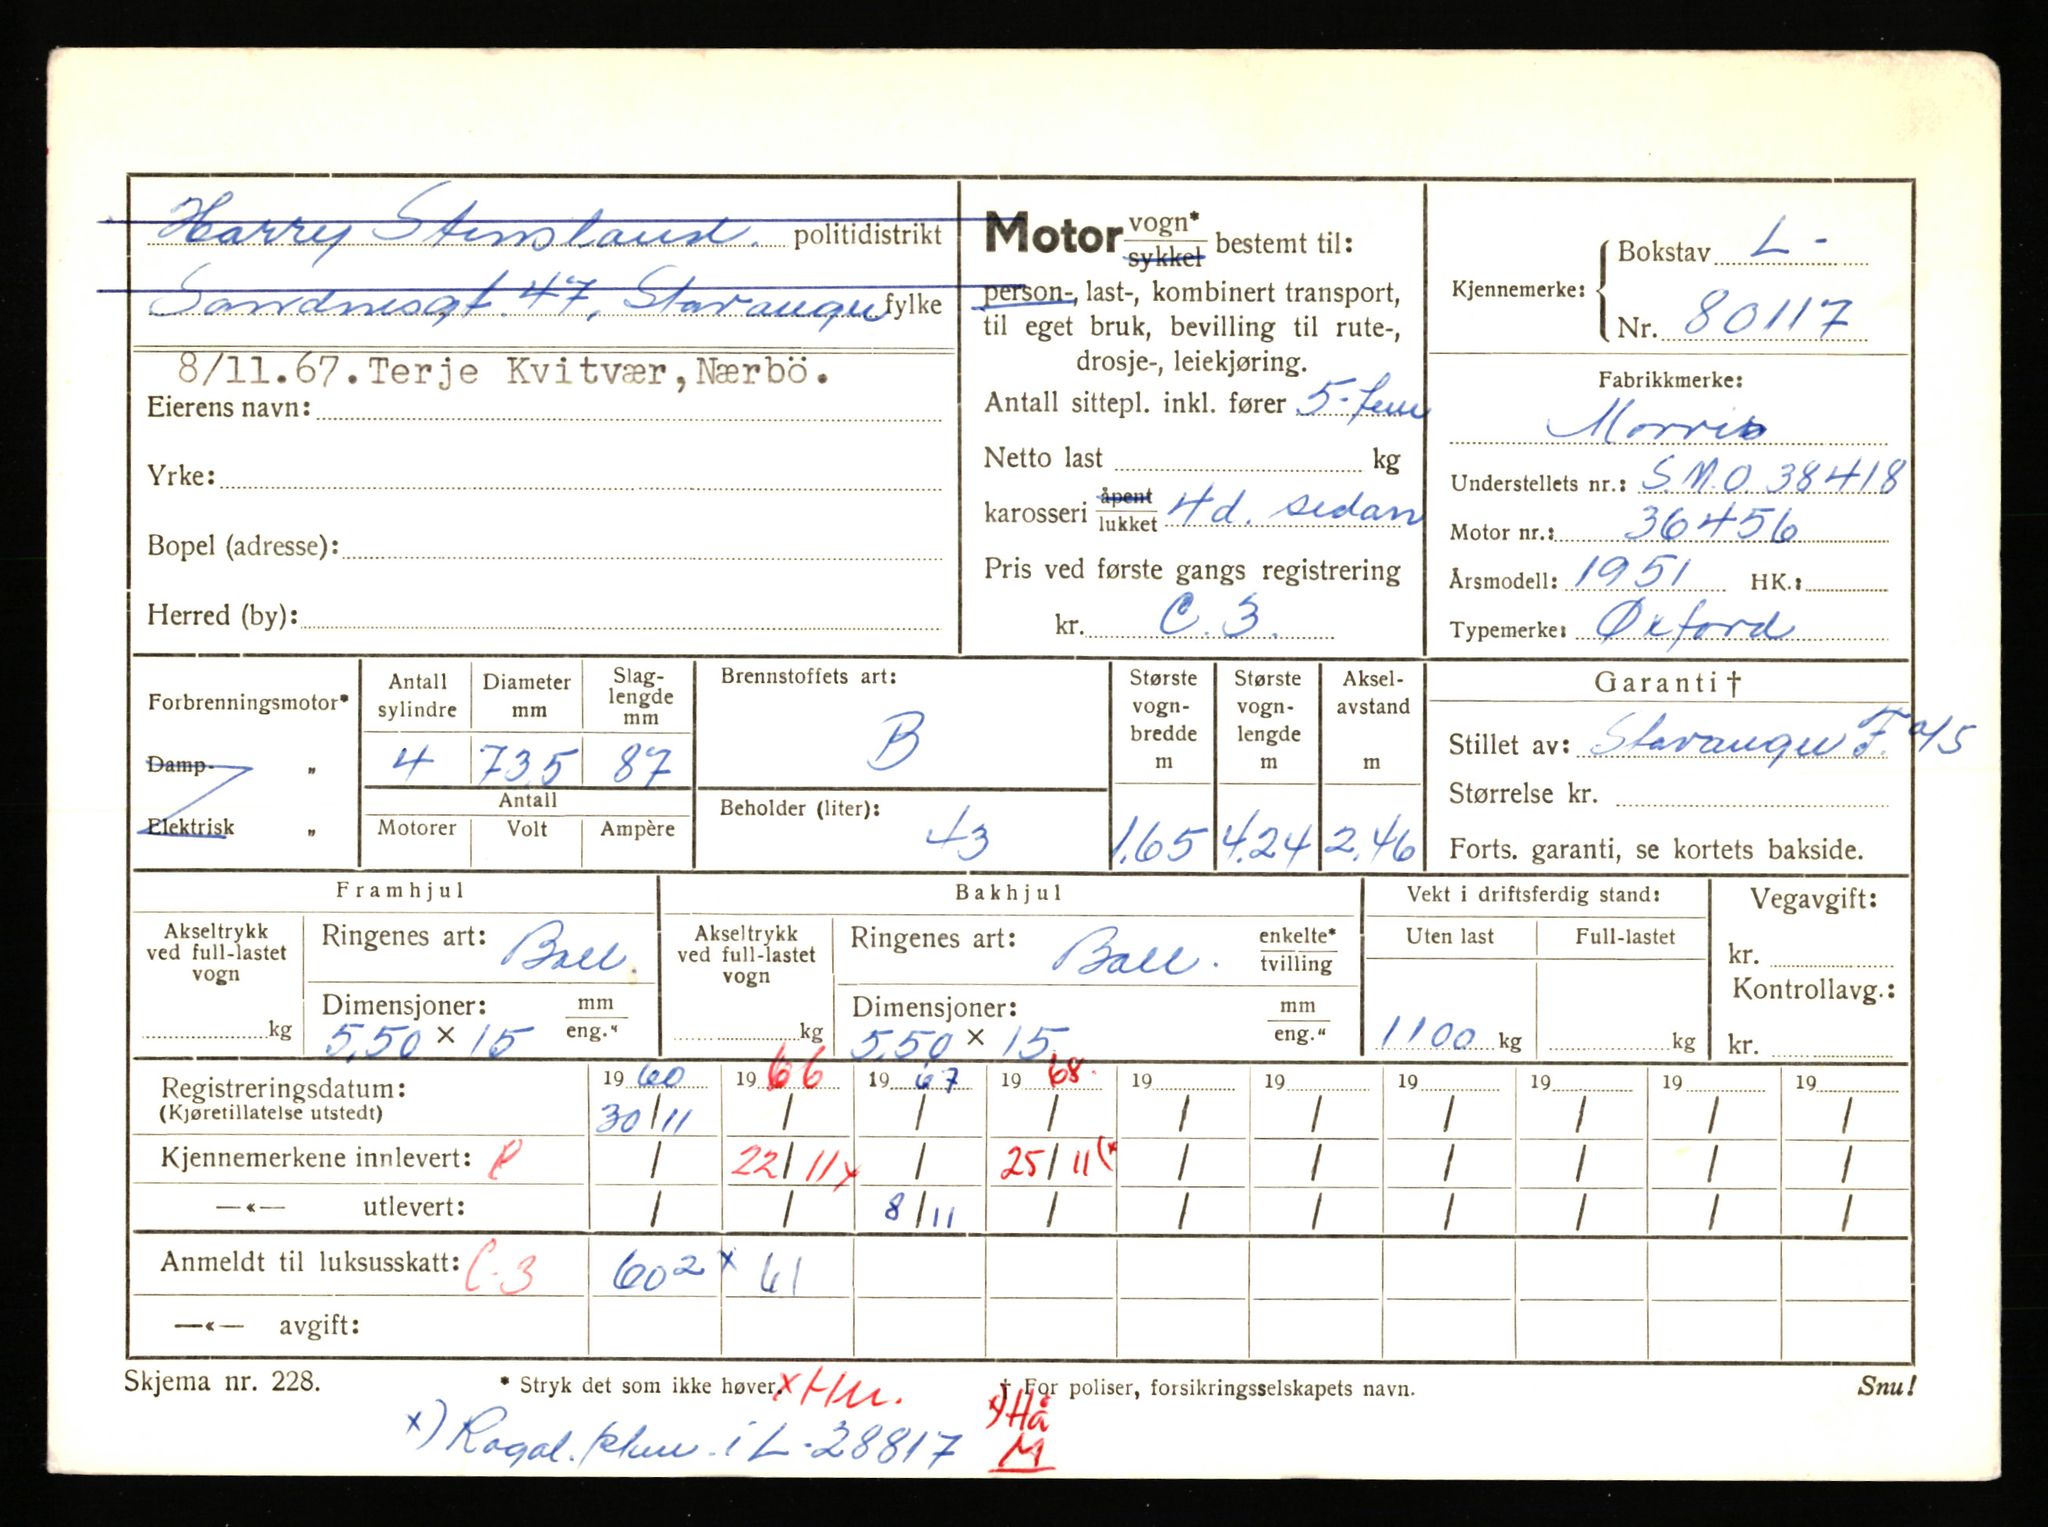 Harry Stensland politidistrikt
Sandnesgt. 47, Stavanger fylke
8/11.67. Terje Kvitvær, Nærbö.
Eierens navn:
Yrke:
Bopel (adresse):
Herred (by):
Motor vogn* sykkel bestemt til:
person-, last-, kombinert transport,
til eget bruk, bevilling til rute-,
drosje-, leiekjøring.
Antall sittepl. inkl. fører 5-fem
Netto last kg
karosseri åpent lukket 4d. sedan
Pris ved første gangs registrering
kr. C. 3.
Kjennemerke: Bokstav L-
Nr. 80117
Fabrikkmerke:
Morris
Understellets nr.: S.M.O. 38418
Motor nr.: 36456
Årsmodell: 1951 HK.:
Typemerke: Oxford
Forbrenningsmotor*
Damp- „
Elektrisk „
Antall sylindre Diameter mm Slaglengde mm
4 73,5 87
Antall
Motorer Volt Ampère
Brennstoffets art:
B
Beholder (liter):
43
Største vognbredde m
1,65
Største vognlengde m
4.24
Akselavstand m
2,46
Garanti †
Stillet av: Stavanger F. a/s
Størrelse kr.
Forts. garanti, se kortets bakside.
Framhjul
Akseltrykk ved full-lastet vogn
kg
Ringenes art: Ball.
Dimensjoner: mm eng."
5,50 × 15
Bakhjul
Akseltrykk ved full-lastet vogn
kg
Ringenes art: Ball. enkelte* tvilling
Dimensjoner: mm eng."
5,50 × 15
Vekt i driftsferdig stand:
Uten last Full-lastet
1100 kg kg
Vegavgift:
kr.
Kontrollavg.:
kr.
Registreringsdatum: 19 60 19 66 19 67 19 68. 19 19 19 19 19 19
(Kjøretillatelse utstedt) 30/11 / / / / / / / / /
Kjennemerkene innlevert: P / 22/11 x / 25/11 (x / / / / / /
—«— utlevert: / / 8/11 / / / / / / /
Anmeldt til luksusskatt: C-3 60² x 61
—«— avgift:
Skjema nr. 228. * Stryk det som ikke høver. x Hu. † For poliser, forsikringsselskapets navn. Snu!
x) Rogal. i L-28817 x) Hå
M